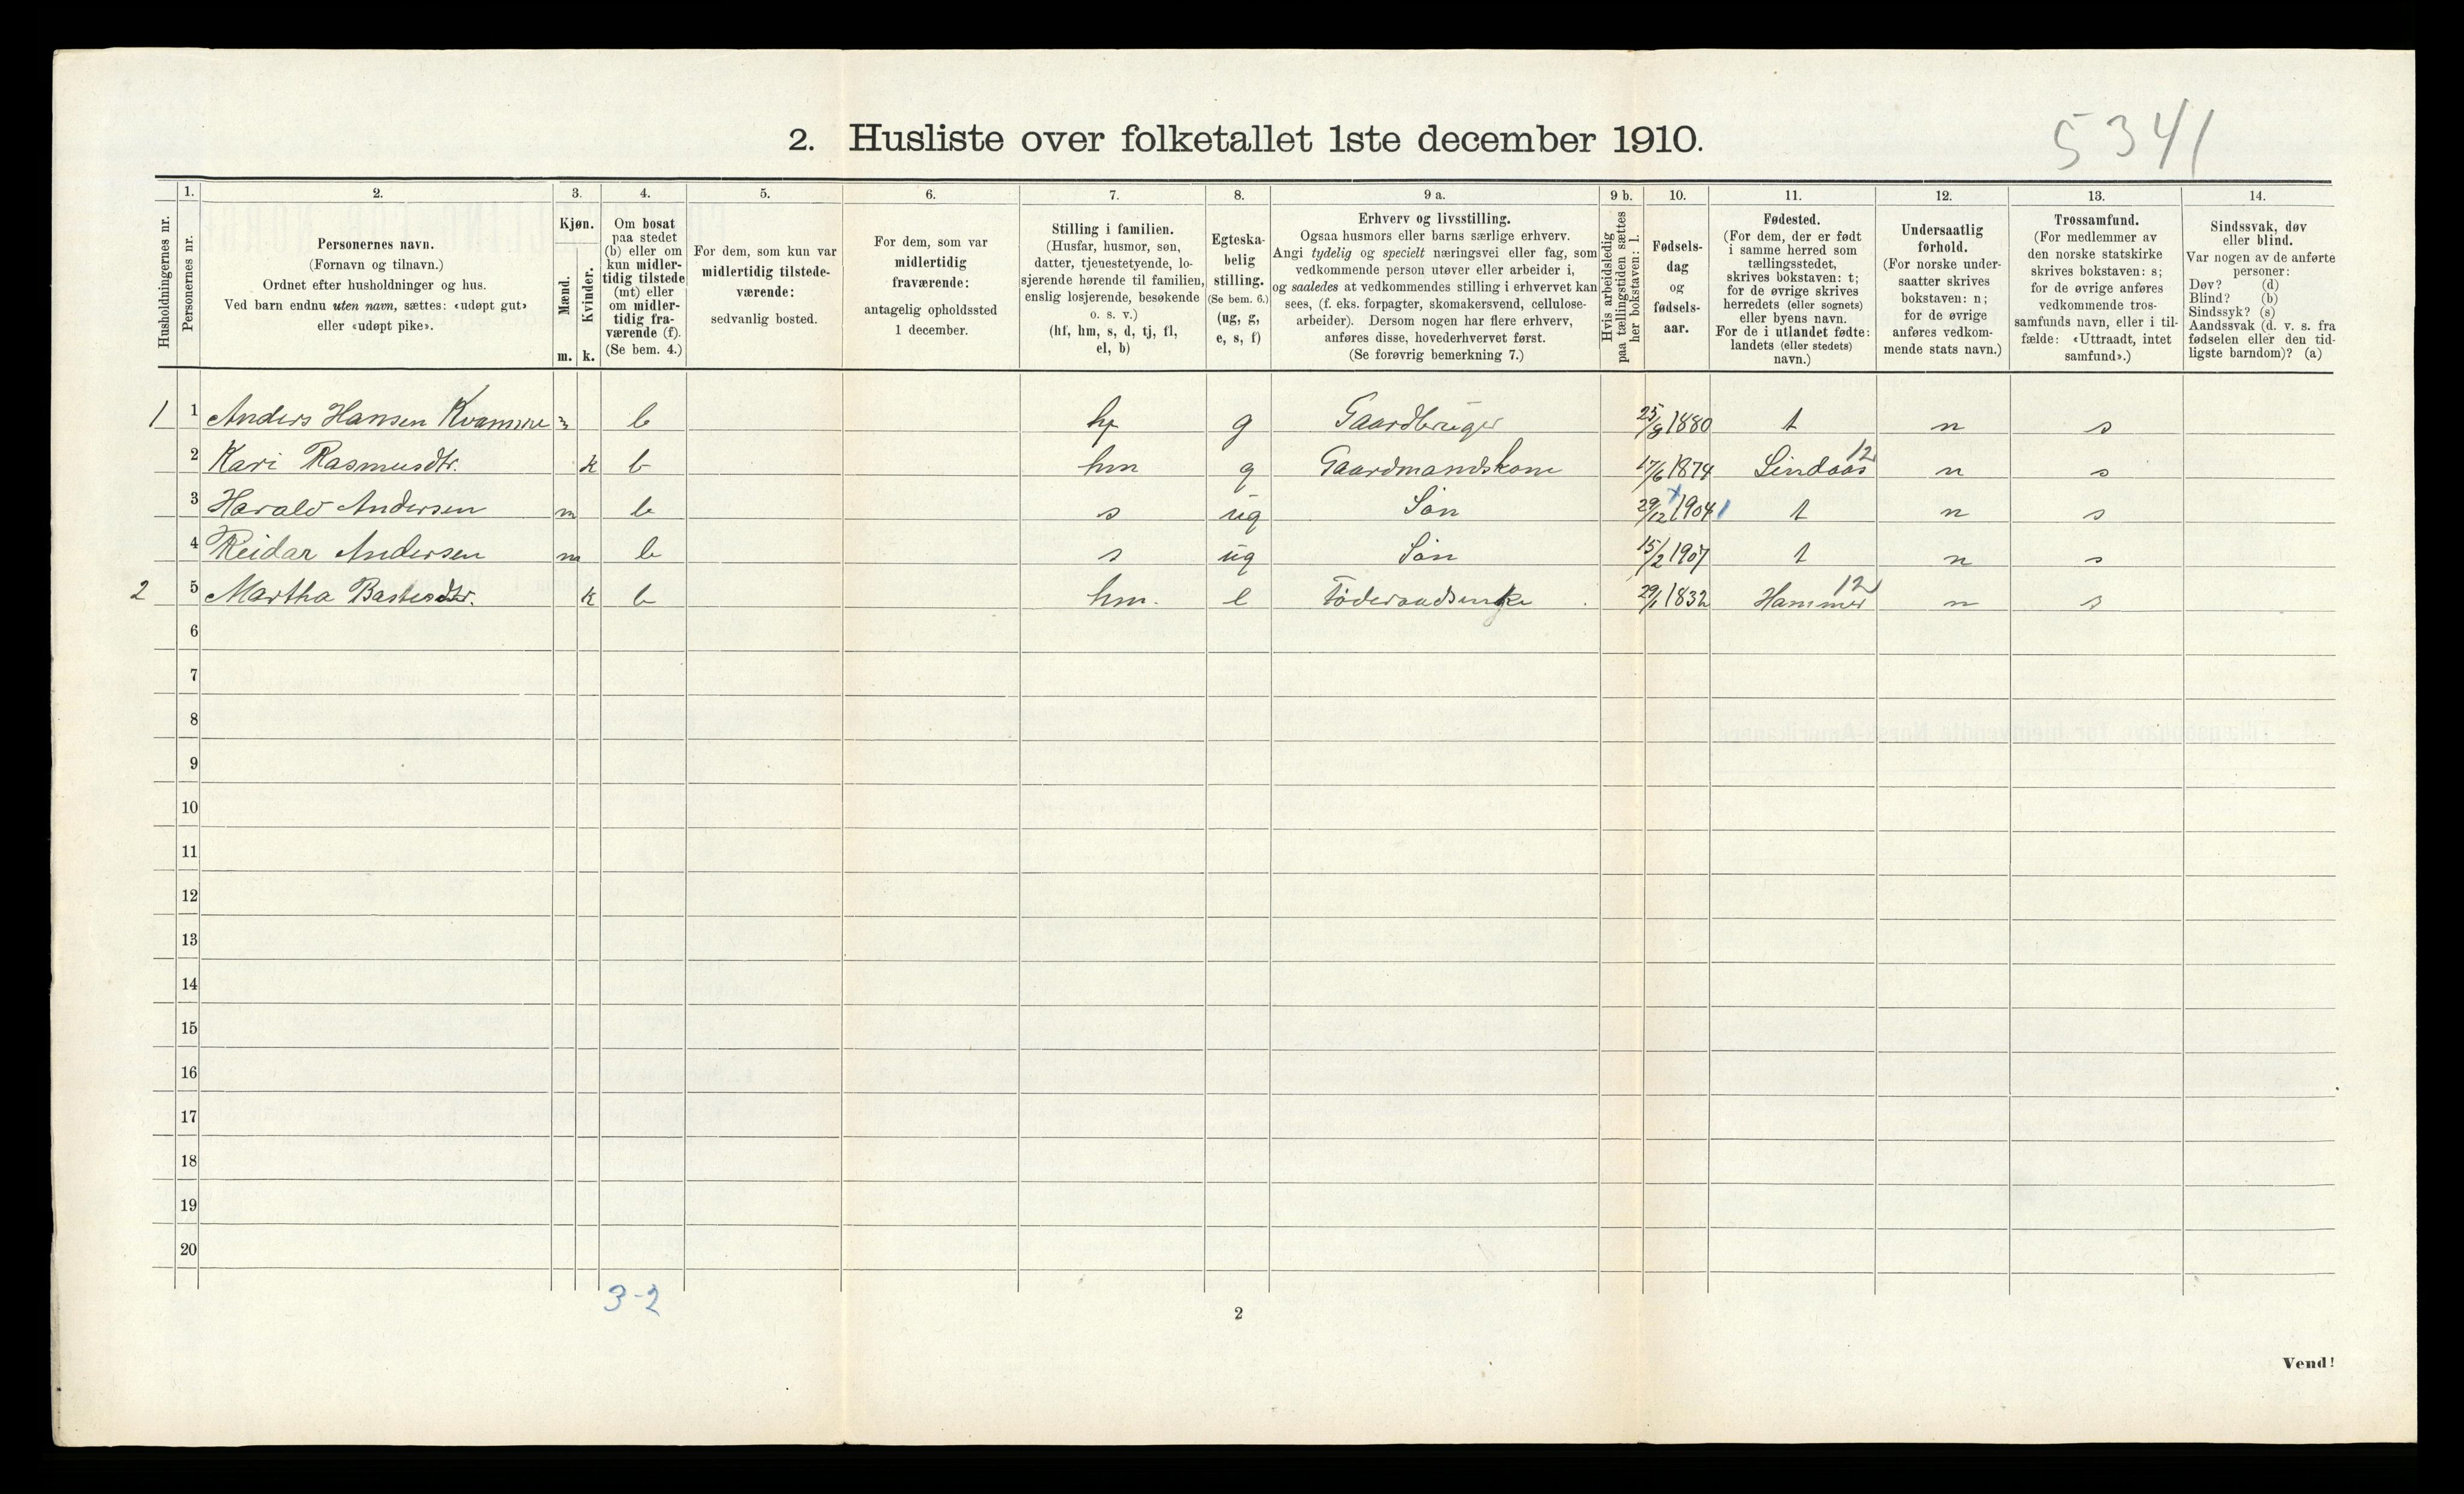 5341
2. Husliste over folketallet 1ste december 1910.
Husholdningernes nr.
1.
Personernes nr.
2.
Personernes navn.
(Fornavn og tilnavn.)
Ordnet efter husholdninger og hus.
Ved barn endnu uten navn, sættes: «udøpt gut»
eller «udøpt pike».
3.
Kjøn.
Mænd.
Kvinder.
m. k.
4.
Om bosat
paa stedet
(b) eller om
kun midler-
tidig tilstede
(mt) eller
om midler-
tidig fra-
værende (f).
(Se bem. 4.)
5.
For dem, som kun var
midlertidig tilstede-
værende:
sedvanlig bosted.
6.
For dem, som var
midlertidig
fraværende:
antagelig opholdssted
1 december.
7.
Stilling i familien.
(Husfar, husmor, søn,
datter, tjenestetyende, lo-
sjerende hørende til familien,
enslig losjerende, besøkende
o. s. v.)
(hf, hm, s, d, tj, fl,
el, b)
8.
Egteska-
belig
stilling.
(Se bem. 6.)
(ug, g,
e, s, f)
9 a.
Erhverv og livsstilling.
Ogsaa husmors eller barns særlige erhverv.
Angi tydelig og specielt næringsvei eller fag, som
vedkommende person utøver eller arbeider i,
og saaledes at vedkommendes stilling i erhvervet kan
sees, (f. eks. forpagter, skomakersvend, cellulose-
arbeider). Dersom nogen har flere erhverv,
anføres disse, hovederhvervet først.
(Se forøvrig bemerkning 7.)
9 b.
Hvis arbeidsledig
paa tællingstiden sættes
her bokstaven: l.
10.
Fødsels-
dag
og
fødsels-
aar.
11.
Fødested.
(For dem, der er født
i samme herred som
tællingsstedet,
skrives bokstaven: t;
for de øvrige skrives
herredets (eller sognets)
eller byens navn.
For de i utlandet fødte:
landets (eller stedets)
navn.)
12.
Undersaatlig
forhold.
(For norske under-
saatter skrives
bokstaven: n;
for de øvrige
anføres vedkom-
mende stats navn.)
13.
Trossamfund.
(For medlemmer av
den norske statskirke
skrives bokstaven: s;
for de øvrige anføres
vedkommende tros-
samfunds navn, eller i til-
fælde: «Uttraadt, intet
samfund».)
14.
Sindssvak, døv
eller blind.
Var nogen av de anførte
personer:
Døv? (d)
Blind? (b)
Sindssyk? (s)
Aandssvak (d. v. s. fra
fødselen eller den tid-
ligste barndom)? (a)
1 1 Anders Hansen Kvamme m b hf g Gaardbruger 25/8 1880 t n s
2 Kari Rasmusdtr. k b hm g Gaardmandskone 17/6 1874 Lindaas 12 n s
3 Harald Andersen m b s ug Søn 29/12 1904 1 t n s
4 Reidar Andersen m b s ug Søn 15/2 1907 t n s
2 5 Martha k b hm. e Føderaadsenke 29/1 1832 Hammer 12 n s
6
7
8
9
10
11
12
13
14
15
16
17
18
19
20
3-2
2
Vend!